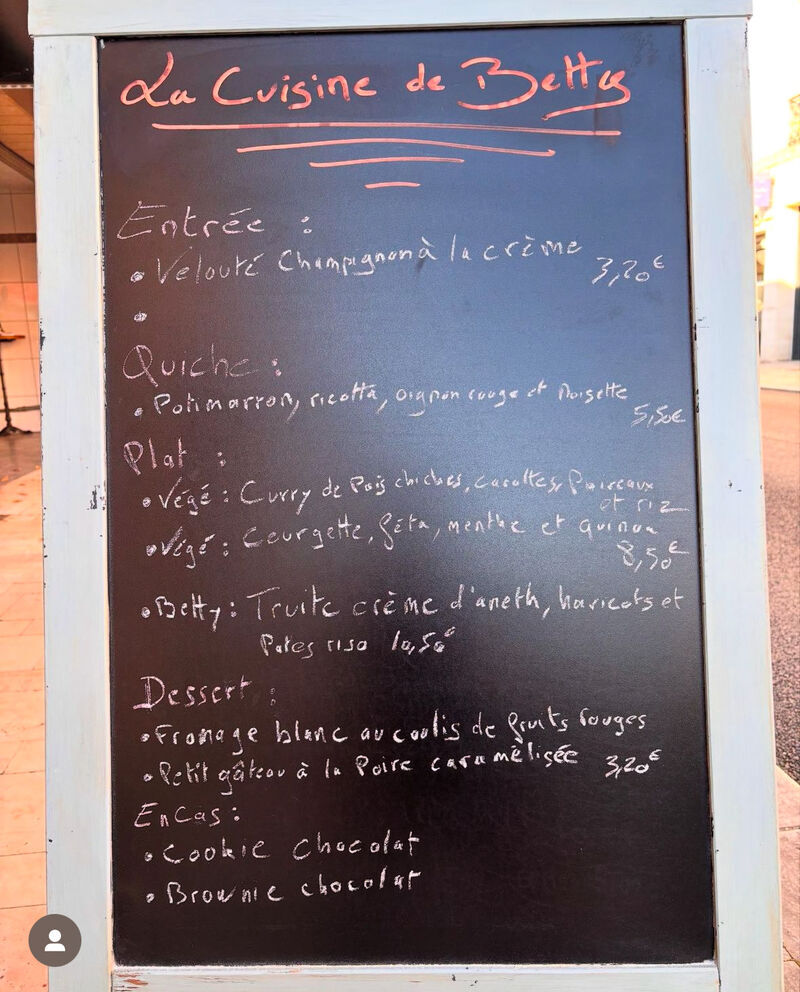 La Cuisine de Betty
Entrée :
• Velouté Champignon à la crème 3,20€
•
Quiche :
• Potimarron, ricotta, oignon rouge et Noisette
5,50€
Plat :
• Végé : Curry de Pois chiches, carottes, Poireaux
et riz
• Végé : Courgette, féta, menthe et quinoa
8,50€
• Betty : Truite crème d'aneth, haricots et
Pates riso 10,50€
Dessert :
• Fromage blanc au coulis de fruits rouges
• Petit gâteau à la Poire caramèlisée 3,20€
EnCas :
• Cookie Chocolat
• Brownie chocolat